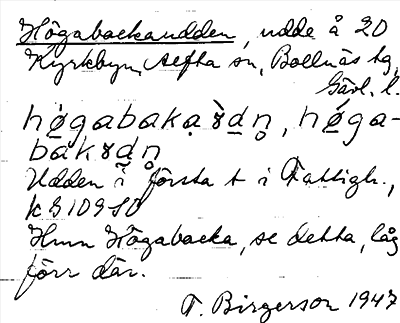 Högabackaudden, udde å 20
Kyrkbyn, Alfta sn, Bollnäs tg,
Gävl. l.
høgabakaɤ̀dn̥, høga-
bakɤdn̥
Udden i första t i Fattigh.,
k S109 SO
Hmn Högabacka, se detta, låg
förr där.
T. Birgerson 1947